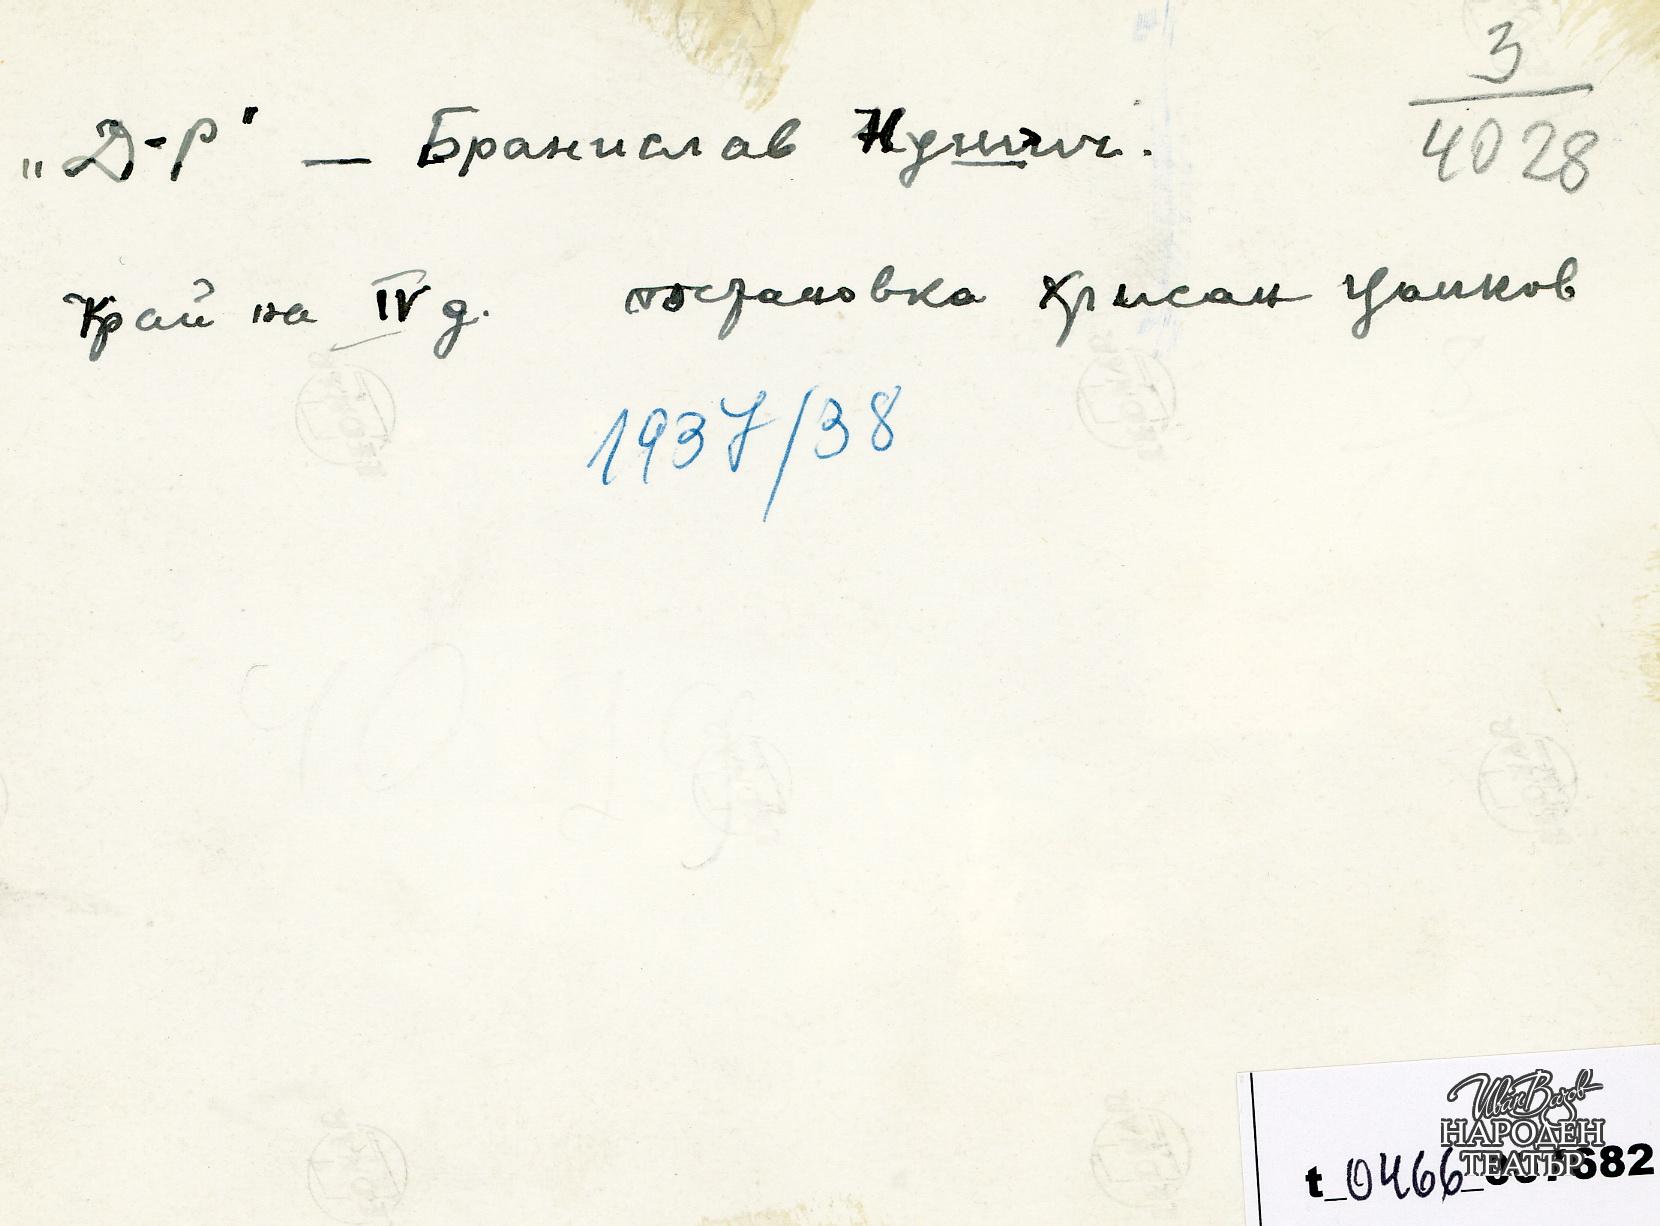 „Д-р" — Бранислав Нушич.
3
4028
Край на IV д. постановка Хрисан Цанков
1937/38
Иван Вазов
НАРОДЕН
ТЕАТЪР
t_0466_